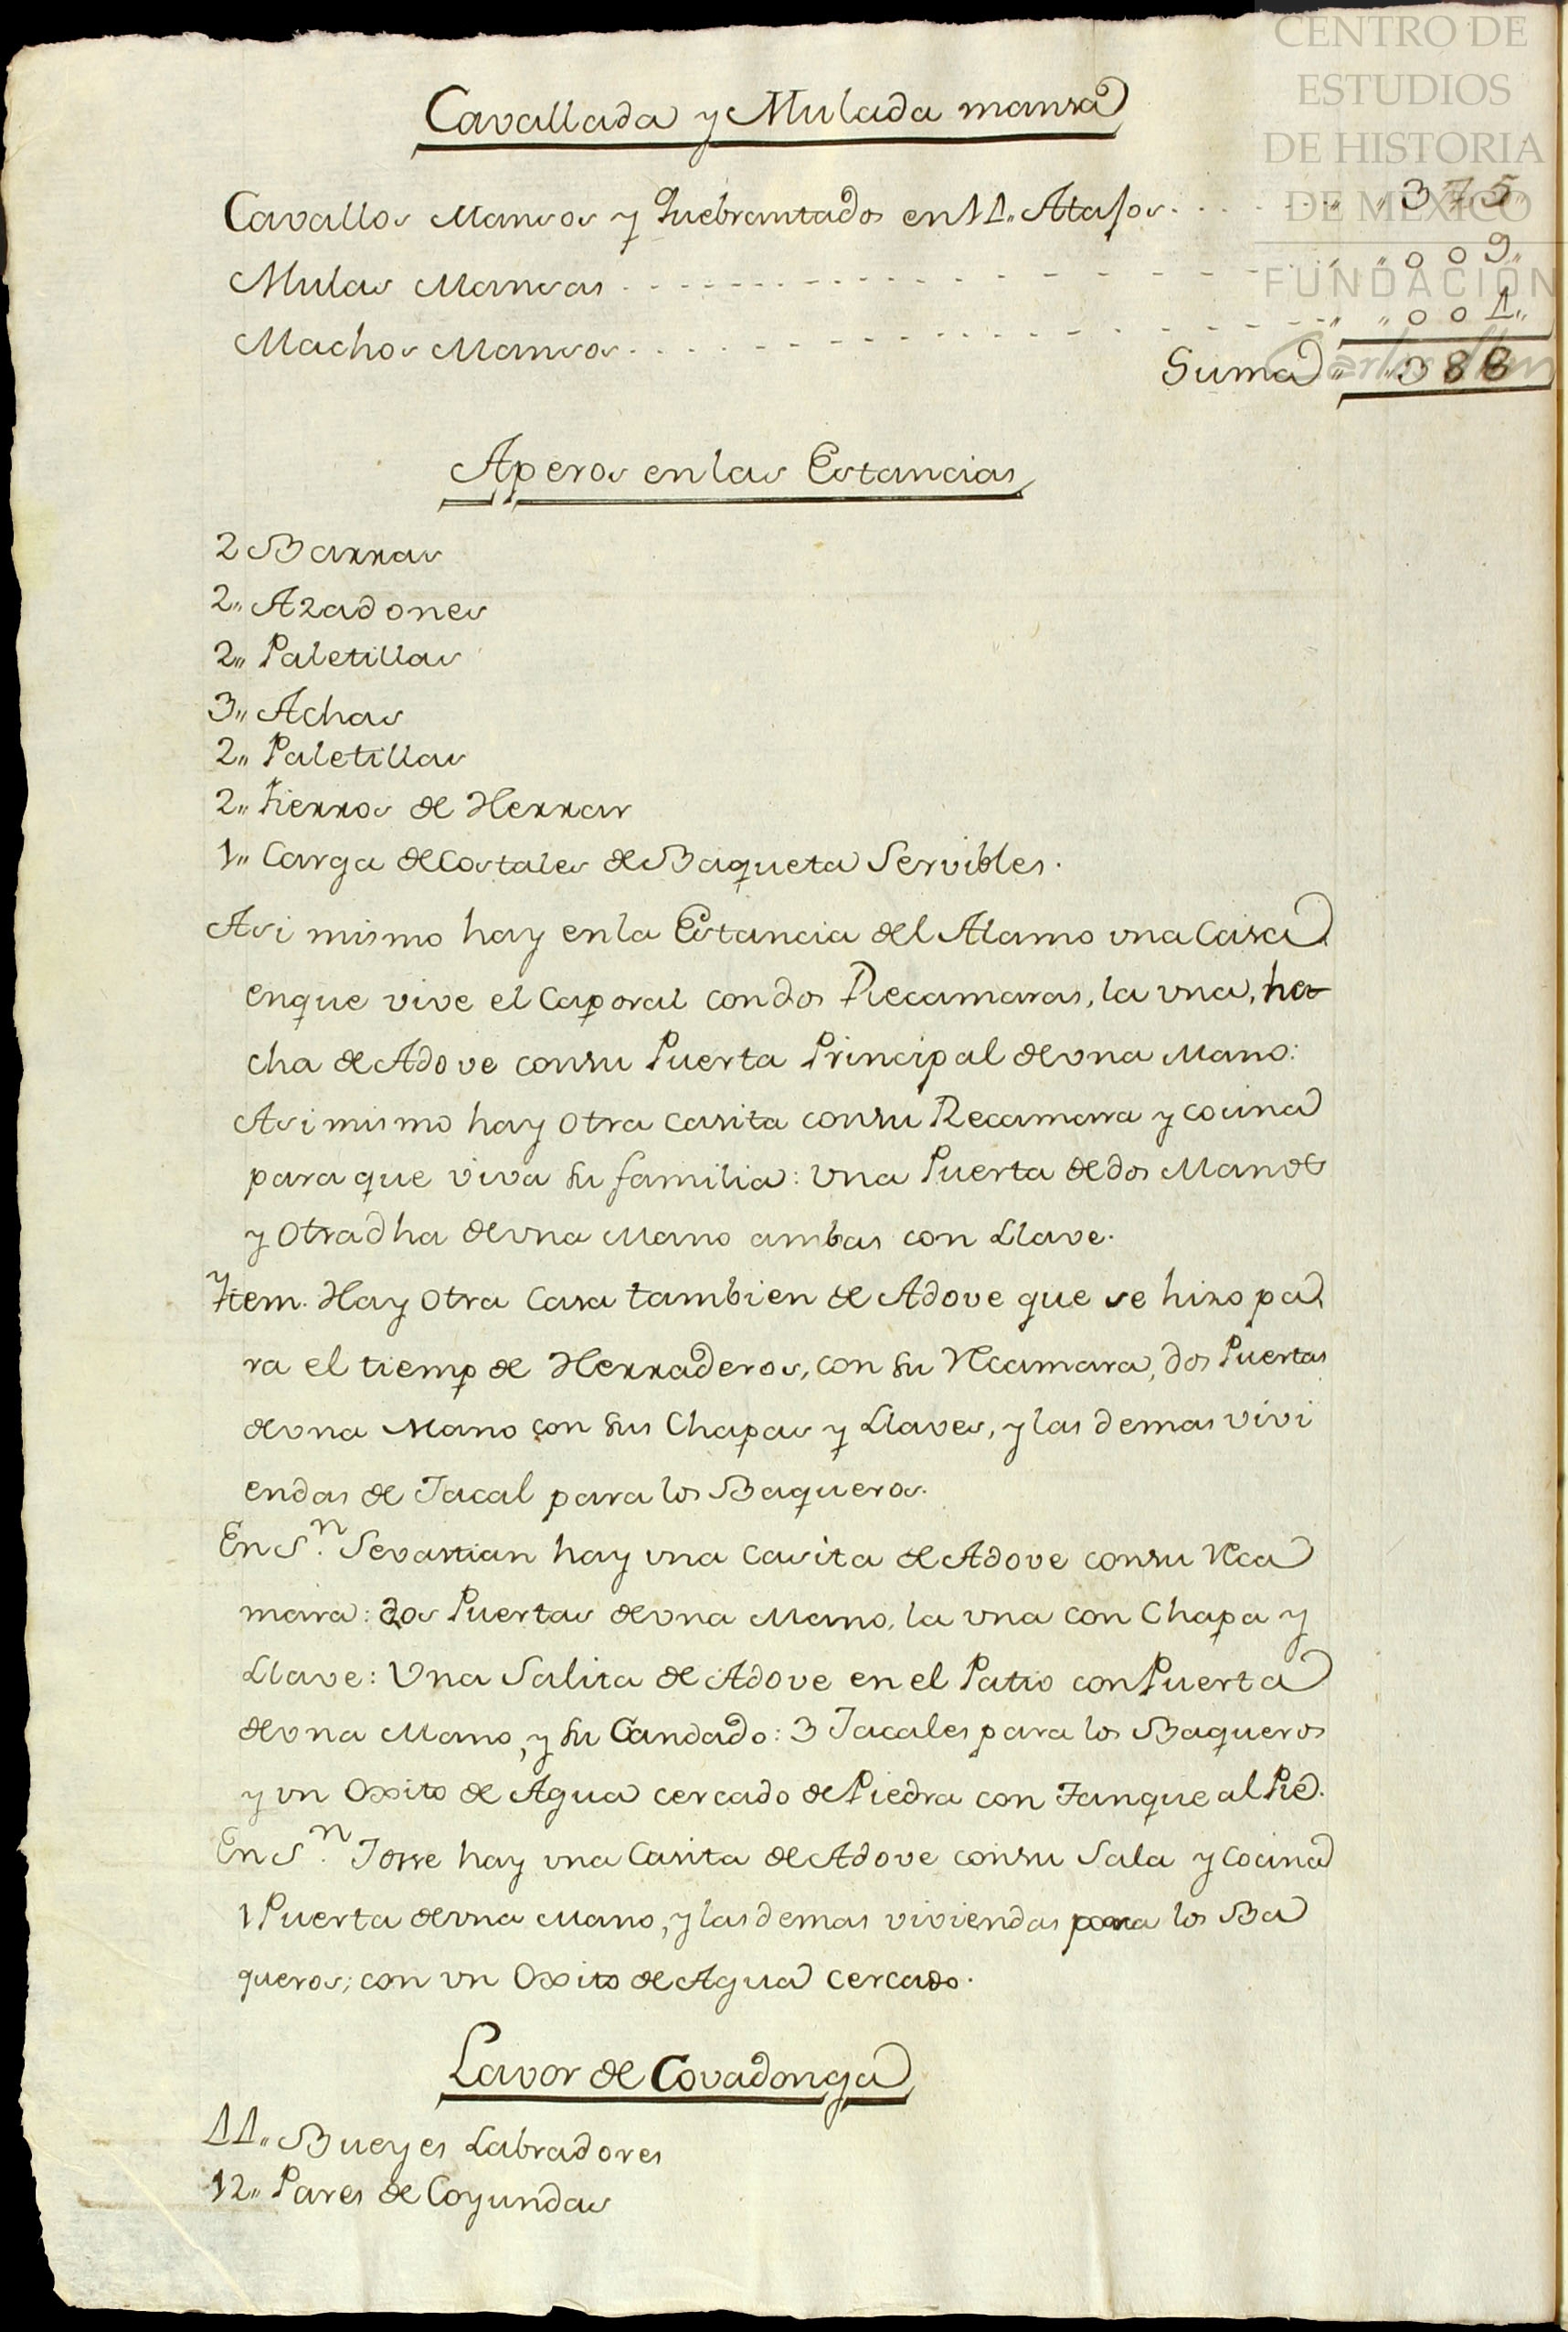 CENTRO DE
ESTUDIOS
DE HISTORIA
DE MÉXICO
FUNDACIÓN
Carlos Slim
Cavallada y Mulada mansa
Cavallos Mansos y Quebrantados en 11,, Atajos. . . . . . . . ,, ,, 375,,
Mulas Mansas . - - - - - - - - - - - - - - - - ,, ,, 009,,
Machos Mansos. . . . - - - - - - - - - - - - - ,, ,, 001,,
Suma ,, ,, 388
Aperos en las Estancias
2 Barras
2,, Azadones
2,, Paletillas
3,, Achas
2,, Paletillas
2,, Fierros de Herrar
1,, Carga de Costales de Baqueta Servibles.
Asi mismo hay en la Estancia del Alamo una Casa
enque vive el Caporal con dos Recamaras, la una, he
cha de Adove consu Puerta Principal de una Mano:
Asi mismo hay otra casita consu Recamara y cocina
para que viva su familia: Una Puerta de dos Manos
y Otra dha de una Mano ambas con Llave.
Ytem. Hay Otra Casa tambien de Adove que se hizo pa
ra el tiemp de Herraderos, con su Recamara, dos Puertas
de una Mano con sus Chapas y Llaves, y las demas vivi
endas de Jacal para los Baqueros.
En S.n Sevastian hay una casita de Adove consu Reca
mara: dos Puertas de una Mano, la una con Chapa y
Llave: Una Salita de Adove en el Patio con Puerta
de una Mano, y su Candado: 3 Jacales para los Baqueros
y un Oxito de Agua cercado de Piedra con Tanque al Pie.
En S.n Jorse hay una Casita de Adove consu Sala y Cocina
1 Puerta de una Mano, y las demas viviendas para los Ba
queros; con un Oxito de Agua cercado.
Lavor de Covadonga
11,, Bueyes Labradores
12,, Pares de Coyundas